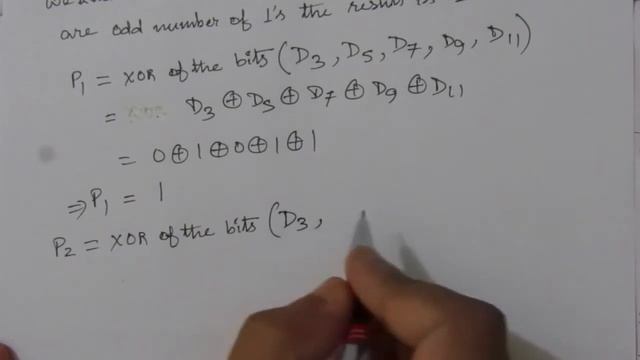 are odd number of 1's the result is
P₁ = XOR of the bits (D₃, D₅, D₇, D₉, D₁₁)
= D₃ ⊕ D₅ ⊕ D₇ ⊕ D₉ ⊕ D₁₁
= 0 ⊕ 1 ⊕ 0 ⊕ 1 ⊕ 1
⇒ P₁ = 1
P₂ = XOR of the bits (D₃,